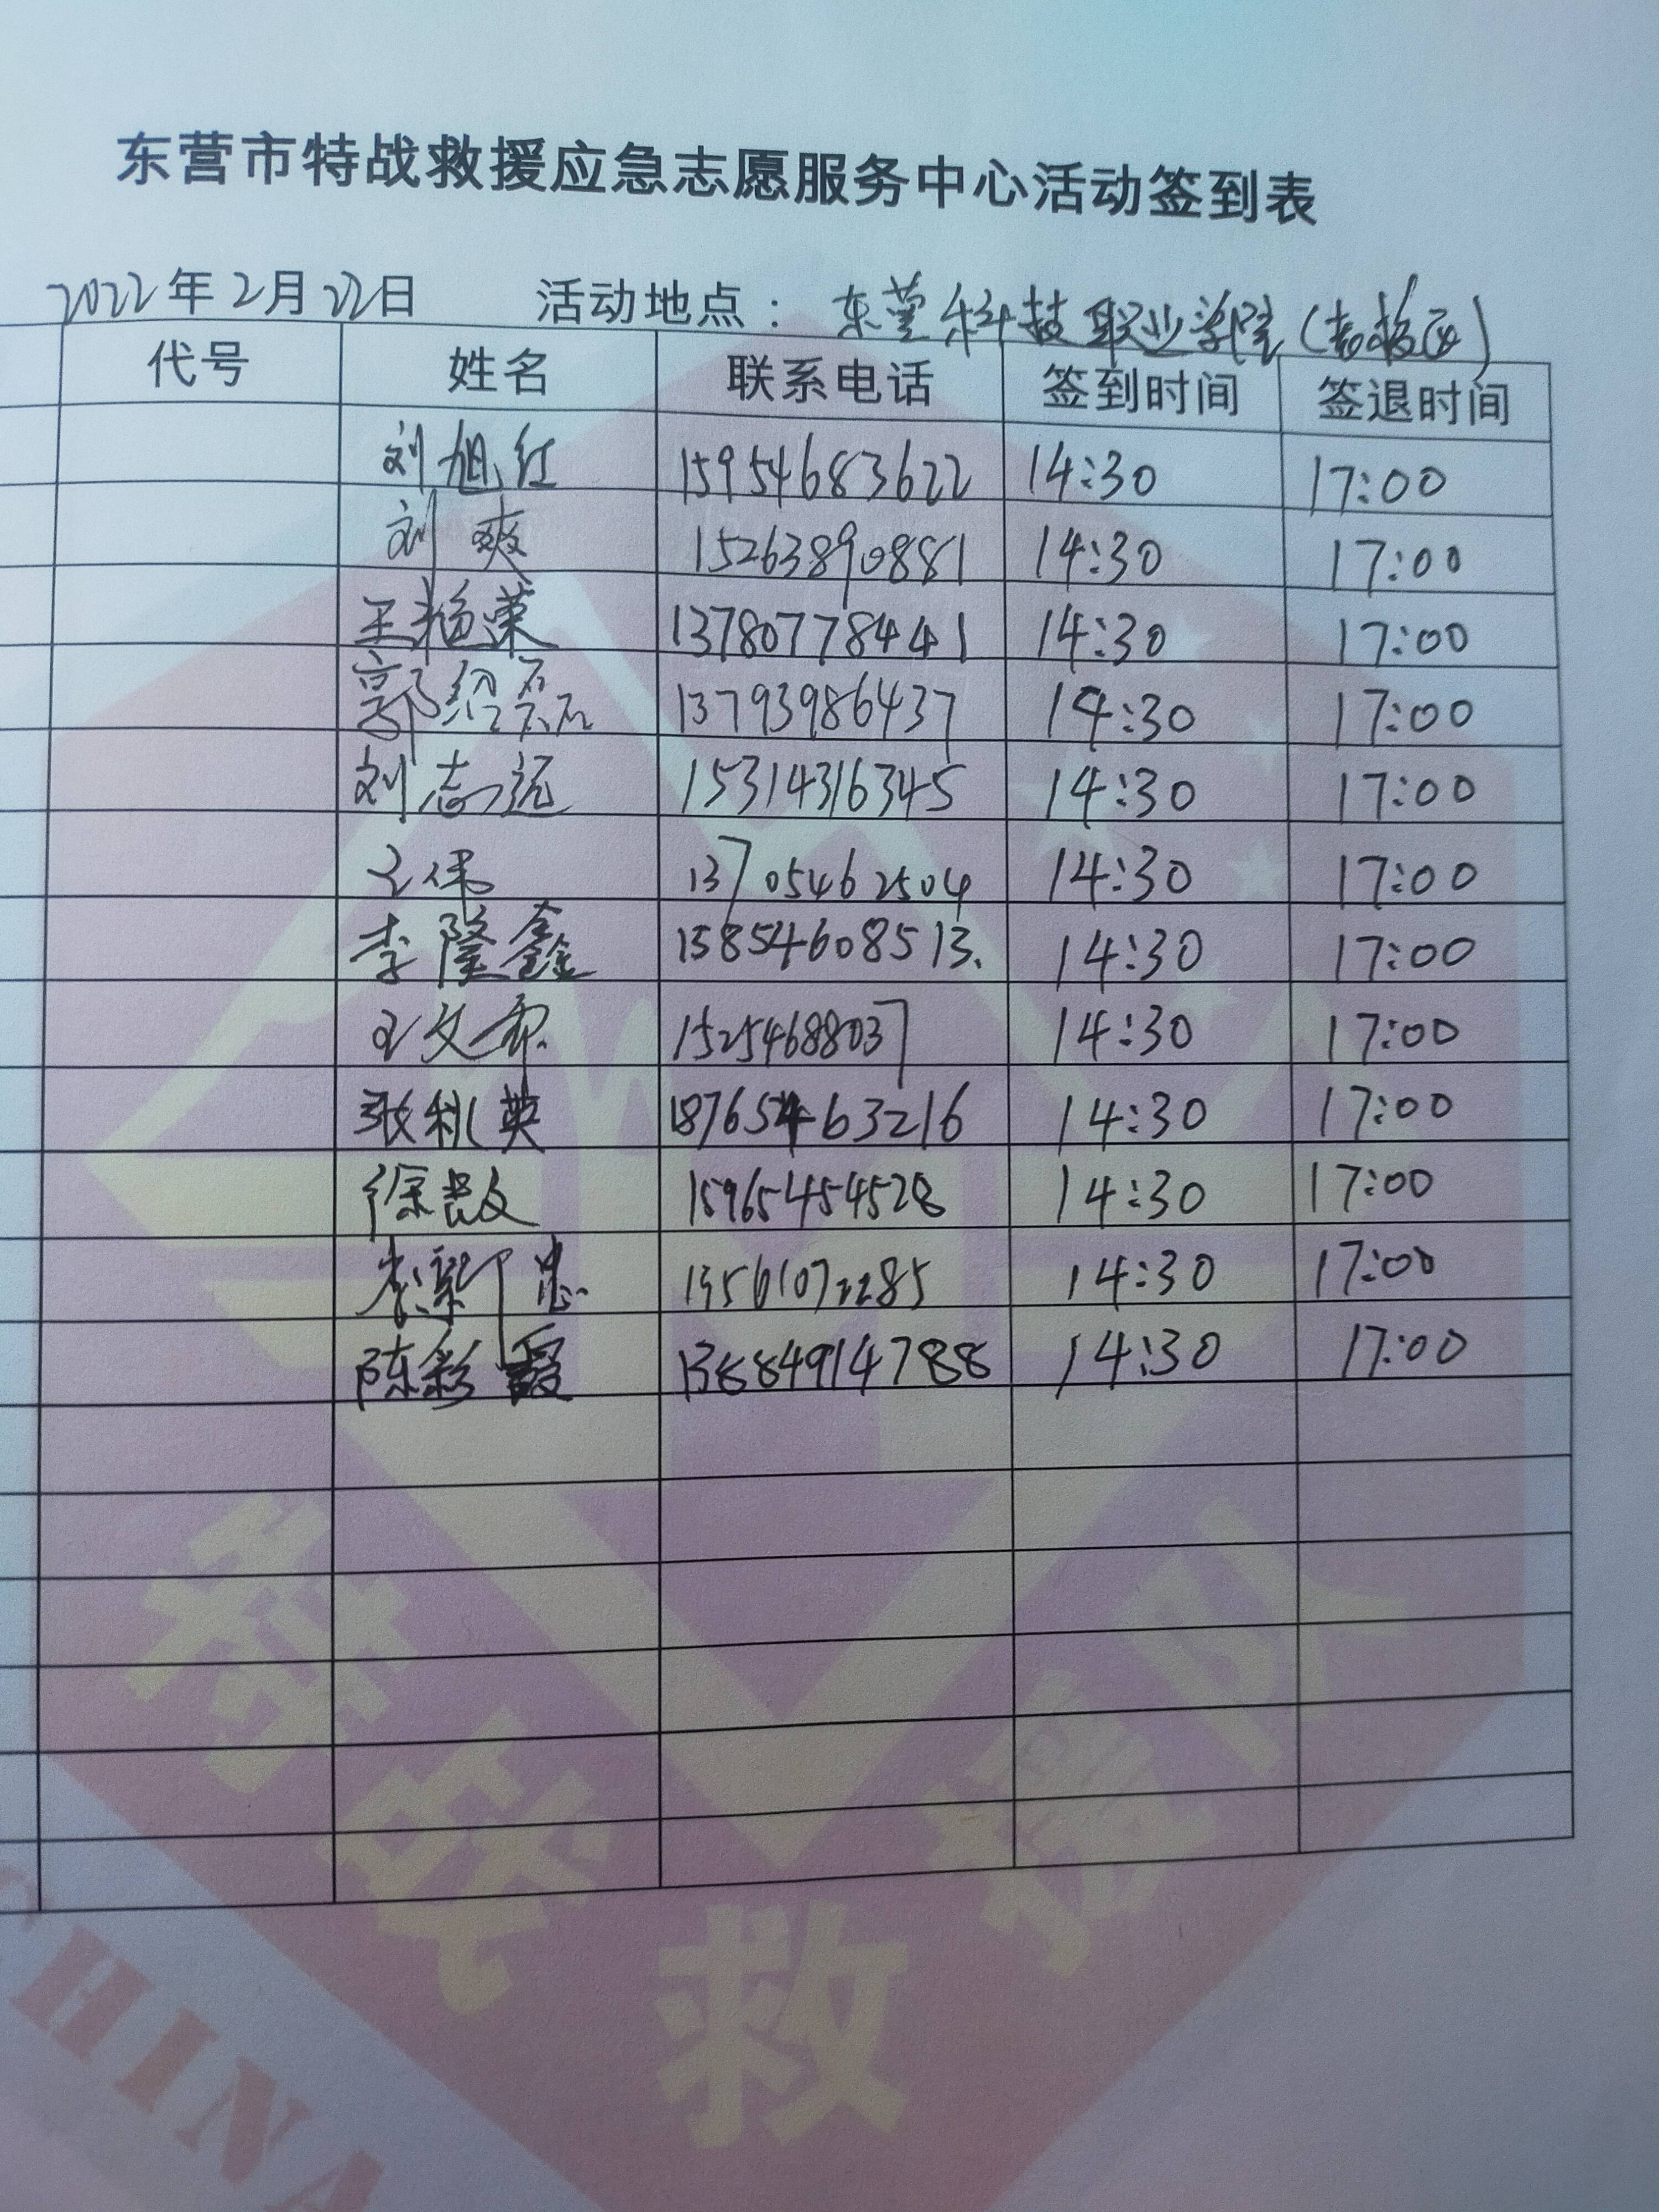 东营市特战救援应急志愿服务中心活动签到表
2022年2月22日 活动地点： 东营科技职业学院（老校区）
代号 姓名 联系电话 签到时间 签退时间
刘旭红 15954683622 14:30 17:00
刘爽 15263890881 14:30 17:00
王艳荣 13780778441 14:30 17:00
郭绍磊 13793986437 14:30 17:00
刘志远 15314316345 14:30 17:00
王伟 13705462504 14:30 17:00
李隆鑫 15854608513. 14:30 17:00
王文 15254688037 14:30 17:00
张桃英 18765463216 14:30 17:00
徐 15965454528 14:30 17:00
13561072285 14:30 17:00
陈彩霞 13884914788 14:30 17:00
特战救援队
CHINA